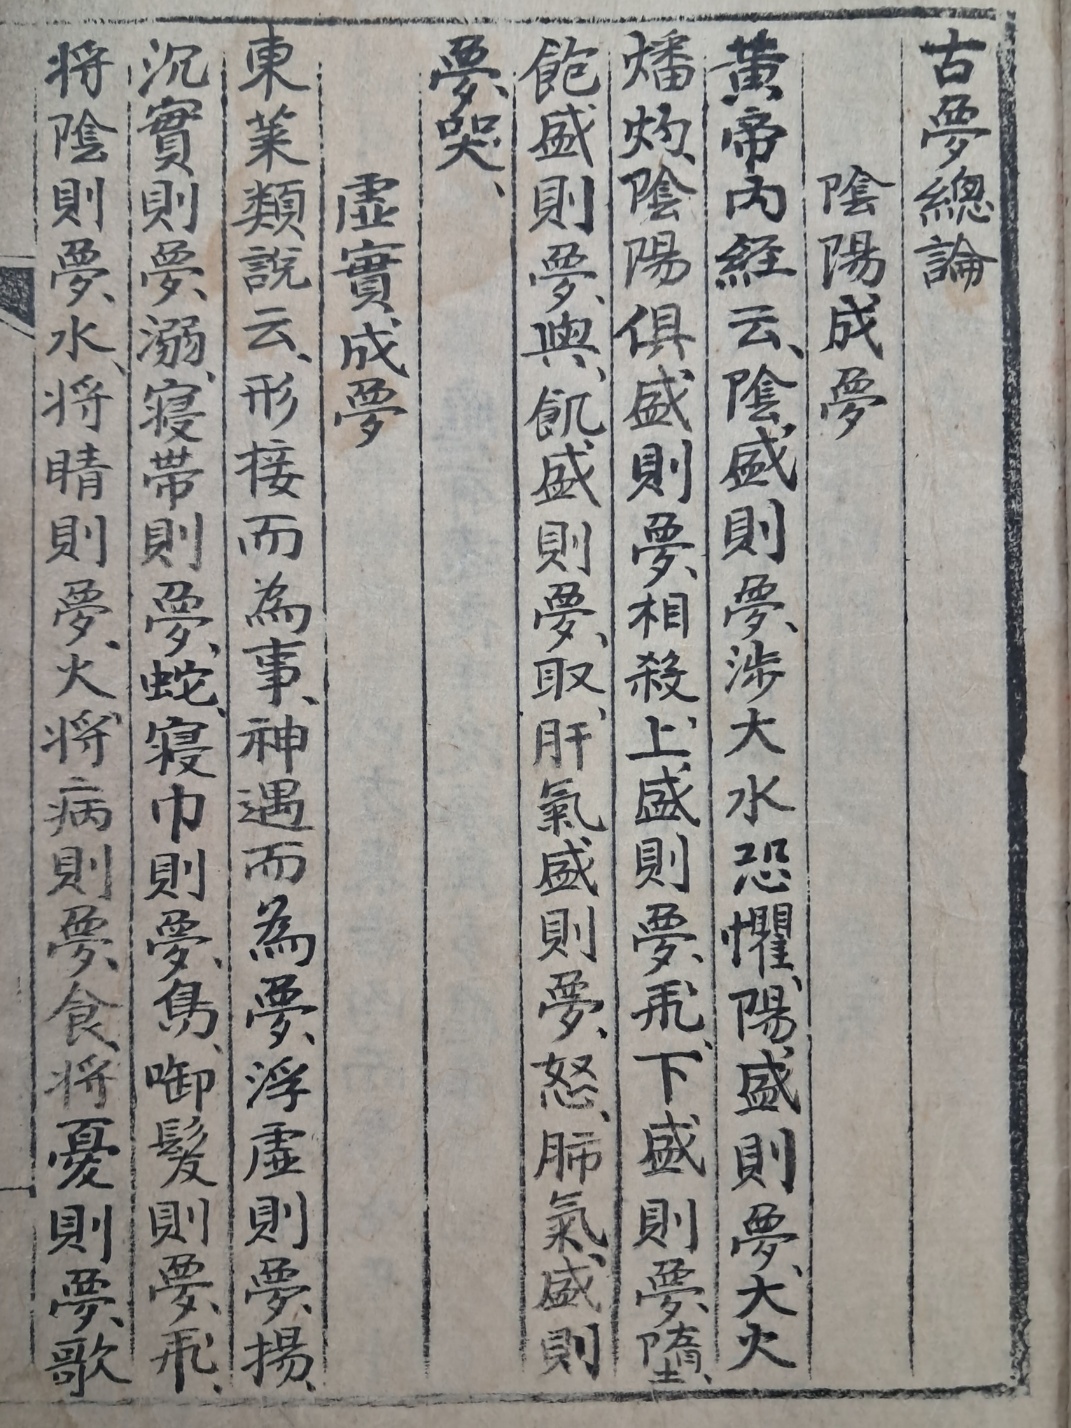 古夢總論
陰陽成夢
黃帝內経云、陰盛則夢、涉大水恐懼、陽盛則夢、大火
燔灼、陰陽俱盛則夢、相殺、上、盛則夢、飛、下盛則夢、墮、
飽盛則夢、與、飢盛則夢、取、肝氣盛則夢、怒、肺氣、盛則
夢、哭、
虛實成夢
東莱類說云、形接而為事、神遇而為夢、浮虛則夢、揚、
沉實則夢、溺、寝帯則夢、蛇、寝巾則夢、鳥、啣髮則夢、飛、
将陰則夢、水、将晴則夢、火、将病則夢、食、将憂則夢、歌